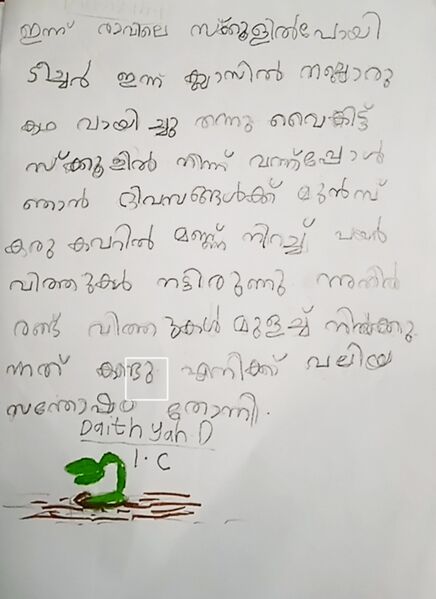 ഇന്ന് രാവിലെ സ്ക്കൂളിൽപോയി
ടീച്ചർ ഇന്ന് ക്ലാസിൽ നല്ലൊരു
കഥ വായി ച്ചു തന്നു വൈകിട്ട്
സ്ക്കൂളിൽ നിന്ന് വന്ന്പ്പോൾ
ഞാൻ ദിവസങ്ങൾക്ക് മുൻമ്പ്
കരു കവറിൽ മണ്ണ് നിറച്ച് പയർ
വിത്തുകൾ നട്ടിരുന്നു അതിൽ
രണ്ട് വിത്തുകൾ മുളച്ച് നിൽക്കു
ന്നത് കണ്ടു എനിക്ക് വലിയ
സന്തോഷം തോന്നി.
Daithyah D
1.C